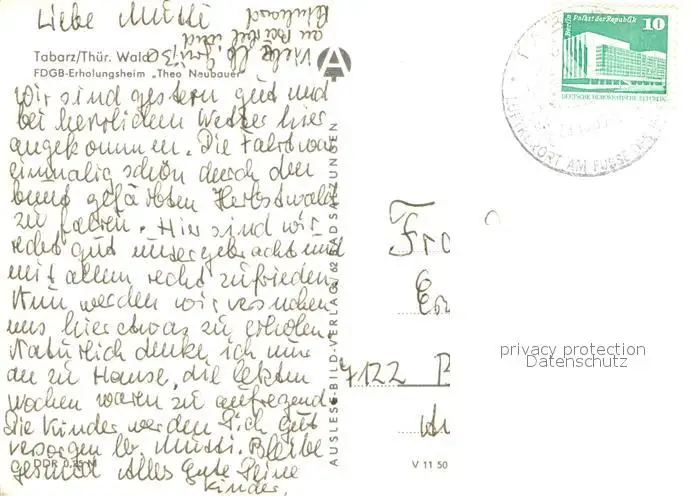 Liebe Mutti
viele lb. Grüße
an Bärbel und
Reinhard
Tabarz/Thür. Wald
FDGB-Erholungsheim „Theo Neubauer"
Wir sind gestern gut und
bei herrlichem Wetter hier
angekommen. Die Fahrt war
einmalig schön durch den
bunt gefärbten Herbstwald
zu fahren. Hier sind wir
recht gut untergebracht und
mit allem recht zufrieden
Nun werden wir versuchen
uns hier etwas zu erholen.
Natürlich denke ich nur
an zu Hause, die letzten
Wochen waren zu aufregend.
Die Kinder werden Dich gut
versorgen lb. Mutti. Bleibe
gesund Alles Gute Deine
Kinder.
DDR 0,25 M
AUSLESE-BILD-VERLAG 62 BAD SALZUNGEN
A
Berlin Palast der Republik 10
DEUTSCHE DEMOKRATISCHE REPUBLIK
AM FUSSE DES
Fra
7122
V 11 50
privacy protection
Datenschutz